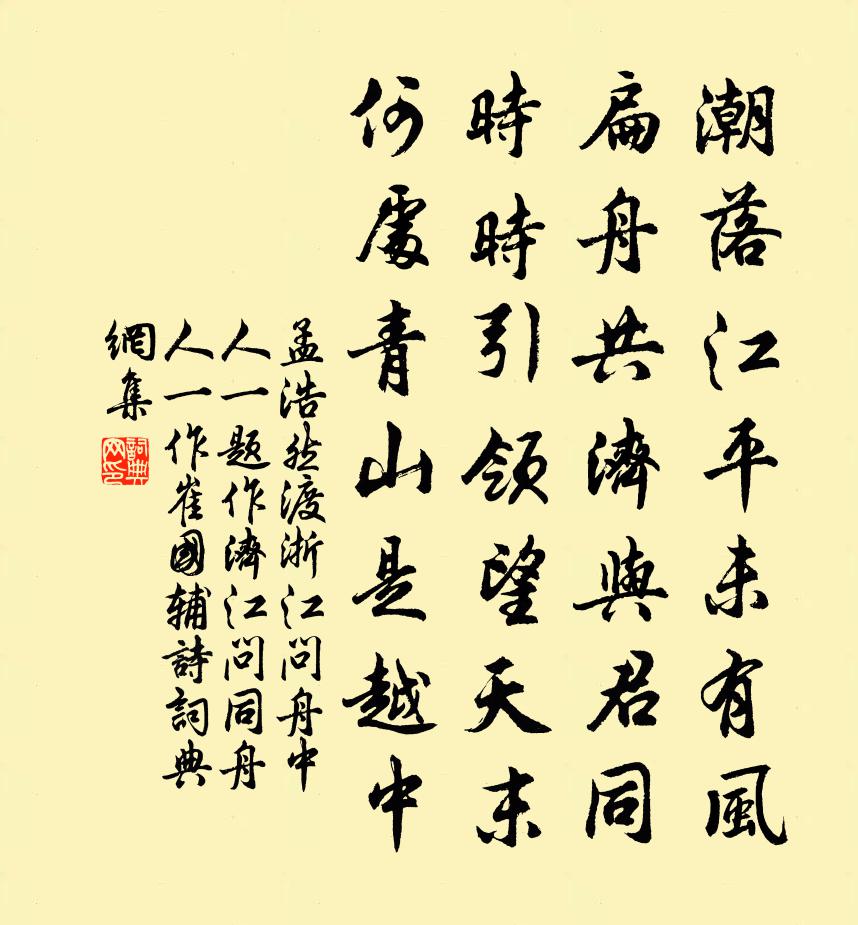 潮落江平未有風
扁舟共濟與君同
時時引領望天末
何處青山是越中
孟浩然渡浙江問舟中
人一題作濟江問同舟
人一作崔國辅詩詞典
網集
詞典
网印